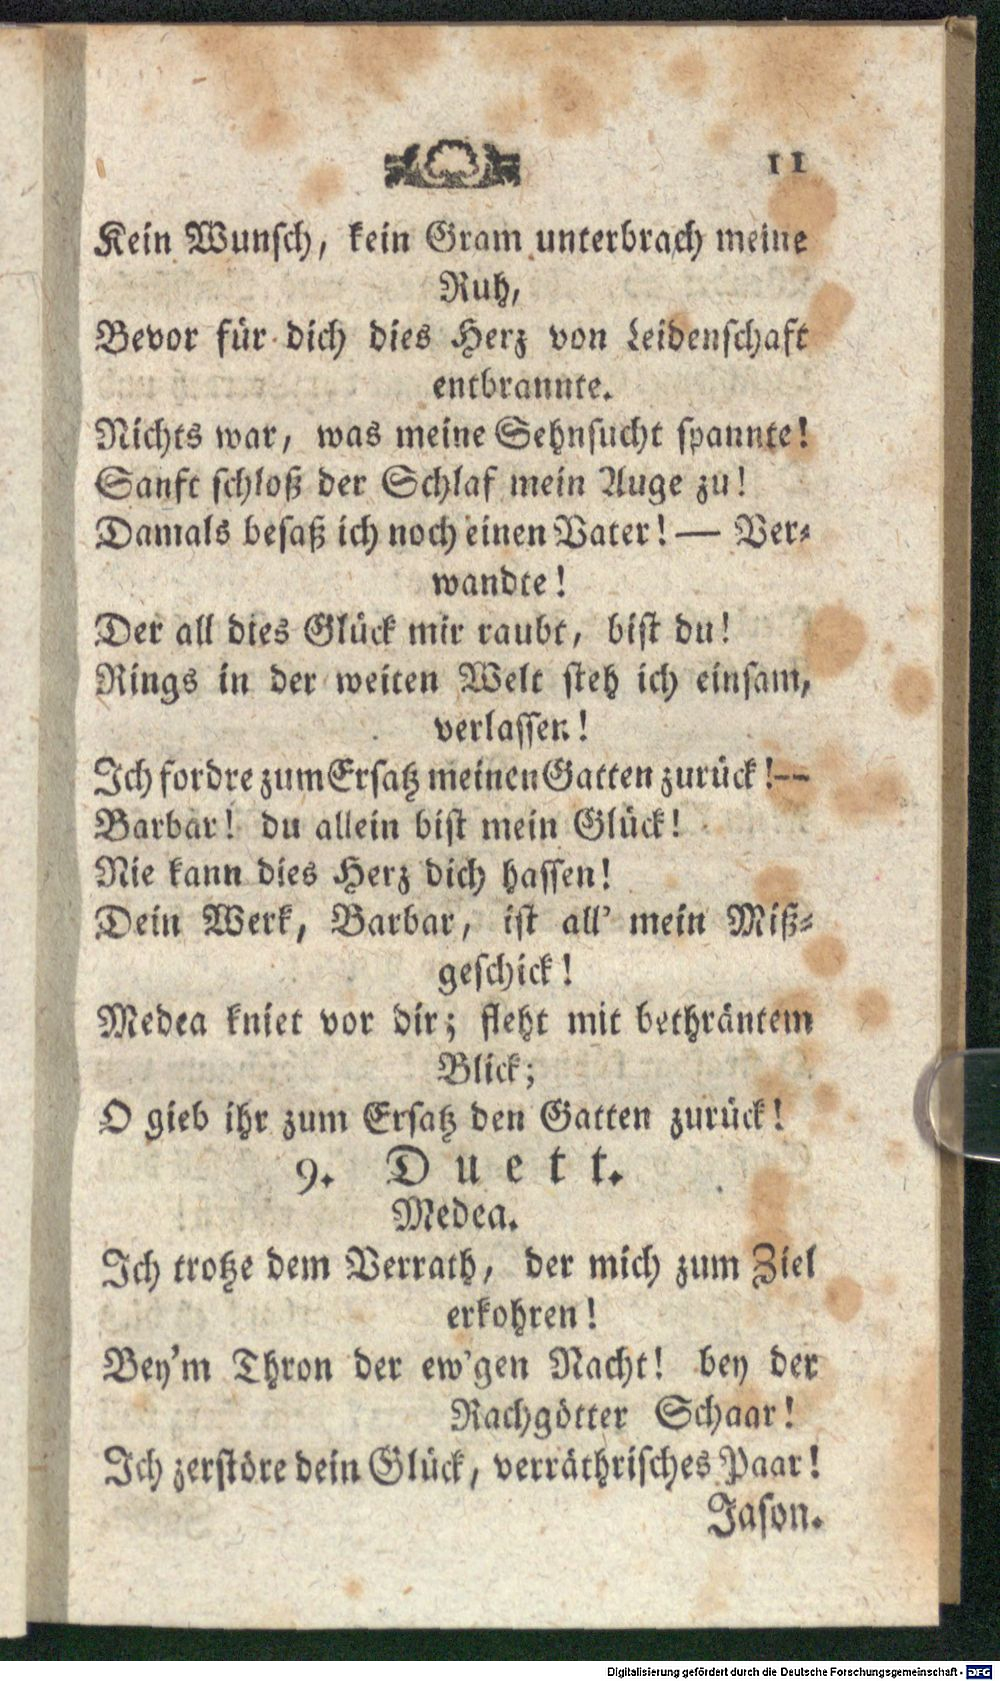 11
Kein Wunsch, kein Gram unterbrach meine
Ruh,
Bevor für dich dies Herz von Leidenschaft
entbrannte.
Nichts war, was meine Sehnsucht spannte!
Sanft schloß der Schlaf mein Auge zu!
Damals besaß ich noch einen Vater! — Ver-
wandte!
Der all dies Glück mir raubt, bist du!
Rings in der weiten Welt steh ich einsam,
verlassen!
Ich fordre zum Ersatz meinen Gatten zurück!--
Barbar! du allein bist mein Glück!
Nie kann dies Herz dich hassen!
Dein Werk, Barbar, ist all' mein Miß-
geschick!
Medea kniet vor dir; fleht mit bethräntem
Blick;
O gieb ihr zum Ersatz den Gatten zurück!
9. Duett.
Medea.
Ich trotze dem Verrath, der mich zum Ziel
erkohren!
Bey'm Thron der ew'gen Nacht! bey der
Rachgötter Schaar!
Ich zerstöre dein Glück, verräthrisches Paar!
Jason.
Digitalisierung gefördert durch die Deutsche Forschungsgemeinschaft - DFG